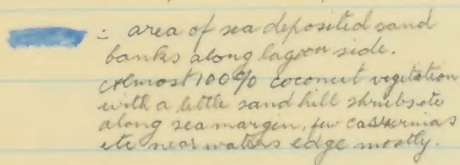 :- area of sea deposited sand
banks along lagoon side.
Almost 100% coconut vegetation
with a little sand hill shrubs etc
along sea margin, few casurinas
etc near waters edge mostly.